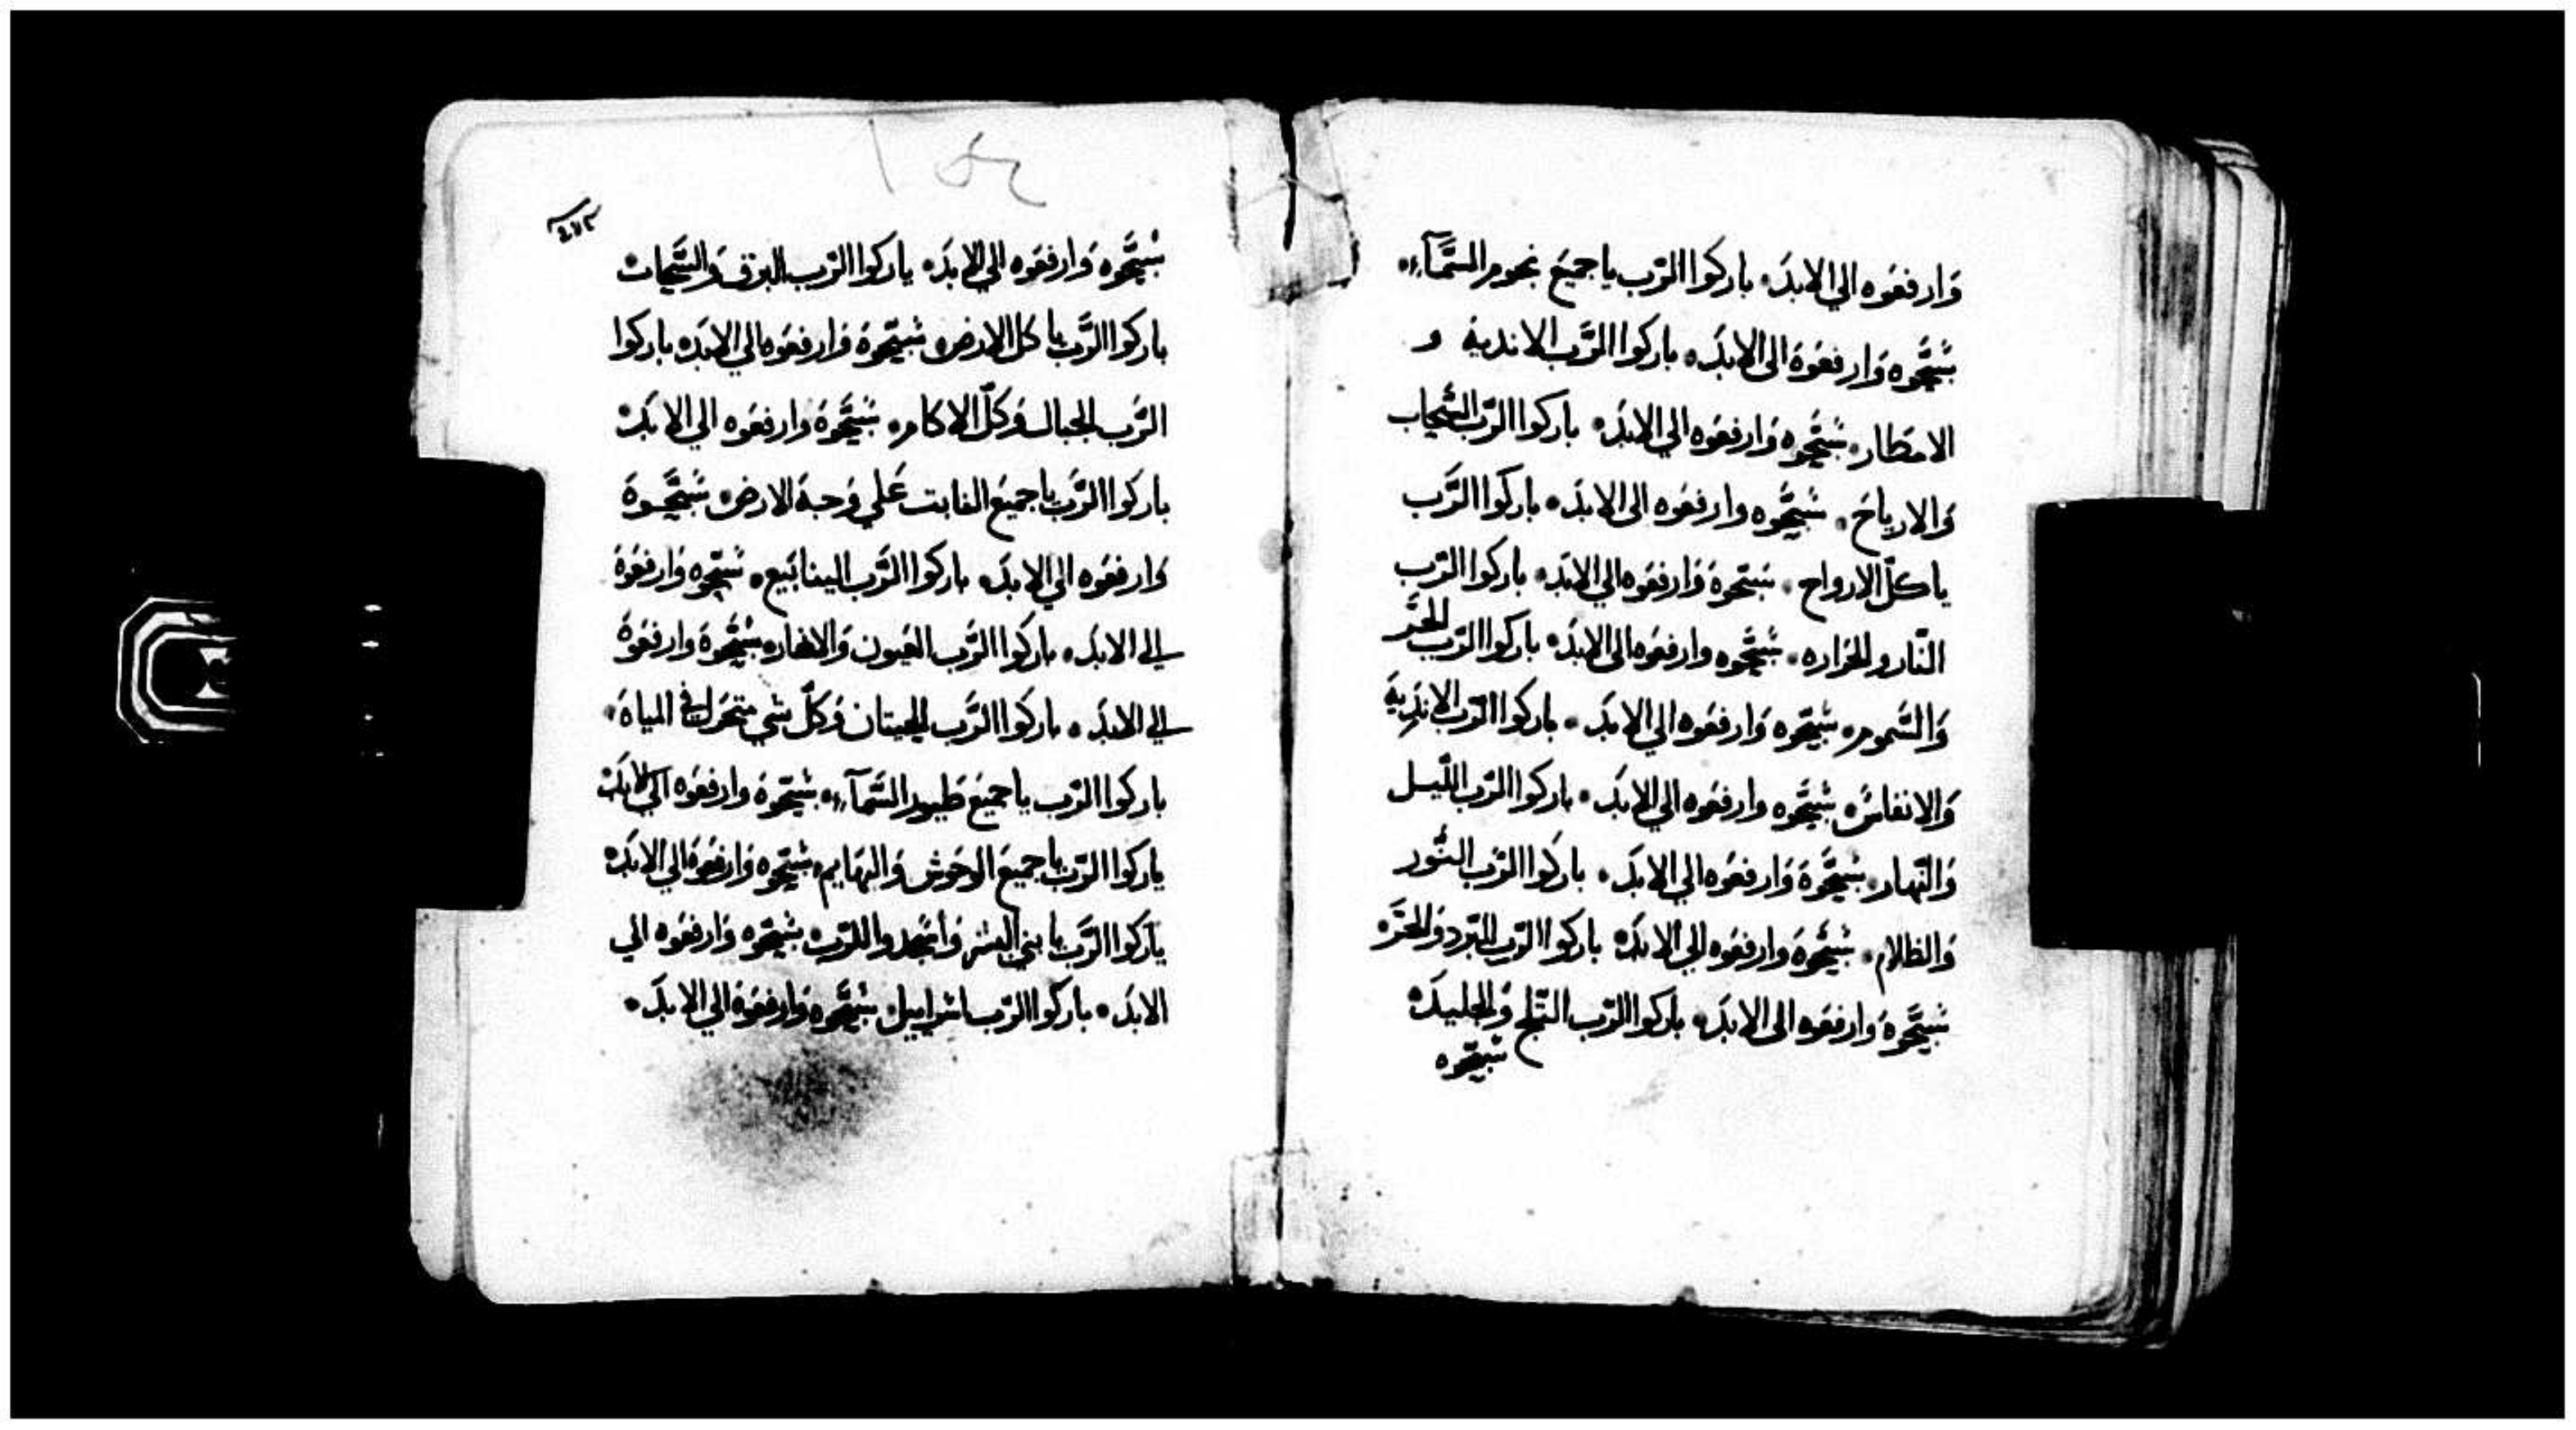 وَارفعَوه الي الابدَ. باركوا الرّب ياجميعَ نجوم السَّمآءِ.
سَبّحَّوه وَارفعَوهَ الى الابدَ. باركوا الرَّب الانديهَ و
الامطار. سَبّحَّوه وَارفعَوه الي الابدَ. باركوا الرّب السَّحاب
وَالارياحَ. سَبّحَّوه وارفعَوه الى الابدَ. باركوا الرَّب
ياكلّ الارواح. سَبّحوهَ وَارفعَوه الي الابدَ. باركوا الرّب
النّار والحَراره. سَبّحَّوه وارفعَوه الى الابدَ. باركوا الرّب الحَرّ
وَالسَّموم. سَبّحّوه وَارفعَوه الي الابدَ. باركوا الرّب الانديهَ
وَالانفاسَ. سَبّحَّوه وارفعَوه الي الابدَ. باركوا الرّب اللّيل
وَالنّهار. سَبّحَّوهَ وَارفعَوه الي الابدَ. باركوا الرّب النَّور
وَالظلام. سَبّحَّوهَ وارفعَوه الي الابدَ. باركوا الرّب البَرد وَالحَرّ.
سَبّحَّوهَ وارفعَوه الى الابدَ. باركوا الرّب الثّلج وَالجليدَ.
سَبّحّوه
سَبّحَّوه وَارفعَوه الي الابدَ. باركوا الرّب البرق وَالسَّحاب
باركوا الرَّب يا كل الارض. سَبّحّوهَ وَارفعَوه الي الابدَ. باركوا
الرَّب الجبال وَكلّ الاكام. سَبّحَّوهَ وارفعَوه الي الابدَ.
باركوا الرَّب ياجميعَ النابت عَلي وَجه الارض. سَبّحَّوهَ
وَارفعَوه الي الابدَ. باركوا الرَّب الينابَيع. سَبّحّوه وَارفعَوهَ
الي الابدَ. باركوا الرَّب العَيون وَالانهار. سَبّحَّوهَ وارفعَوهَ
الي الابدَ. باركوا الرَّب الحيتان وَكلّ شي متحَرك في المياهَ.
باركوا الرّب ياجميعَ طَيور السَّمآءِ. سَبّحّوهَ وارفعَوه الي الابدَ.
باركوا الرّب ياجميعَ الوَحوش وَالبهَايم. سَبّحّوه وَارفعَوهَ الي الابدَ.
باركوا الرَّب يا بني البشر وَاسَجدوا للرّب. سَبّحّوه وَارفعَوه الي
الابدَ. باركوا الرّب اسَراييل. سَبّحَّوه وَارفعَوهَ الي الابدَ.